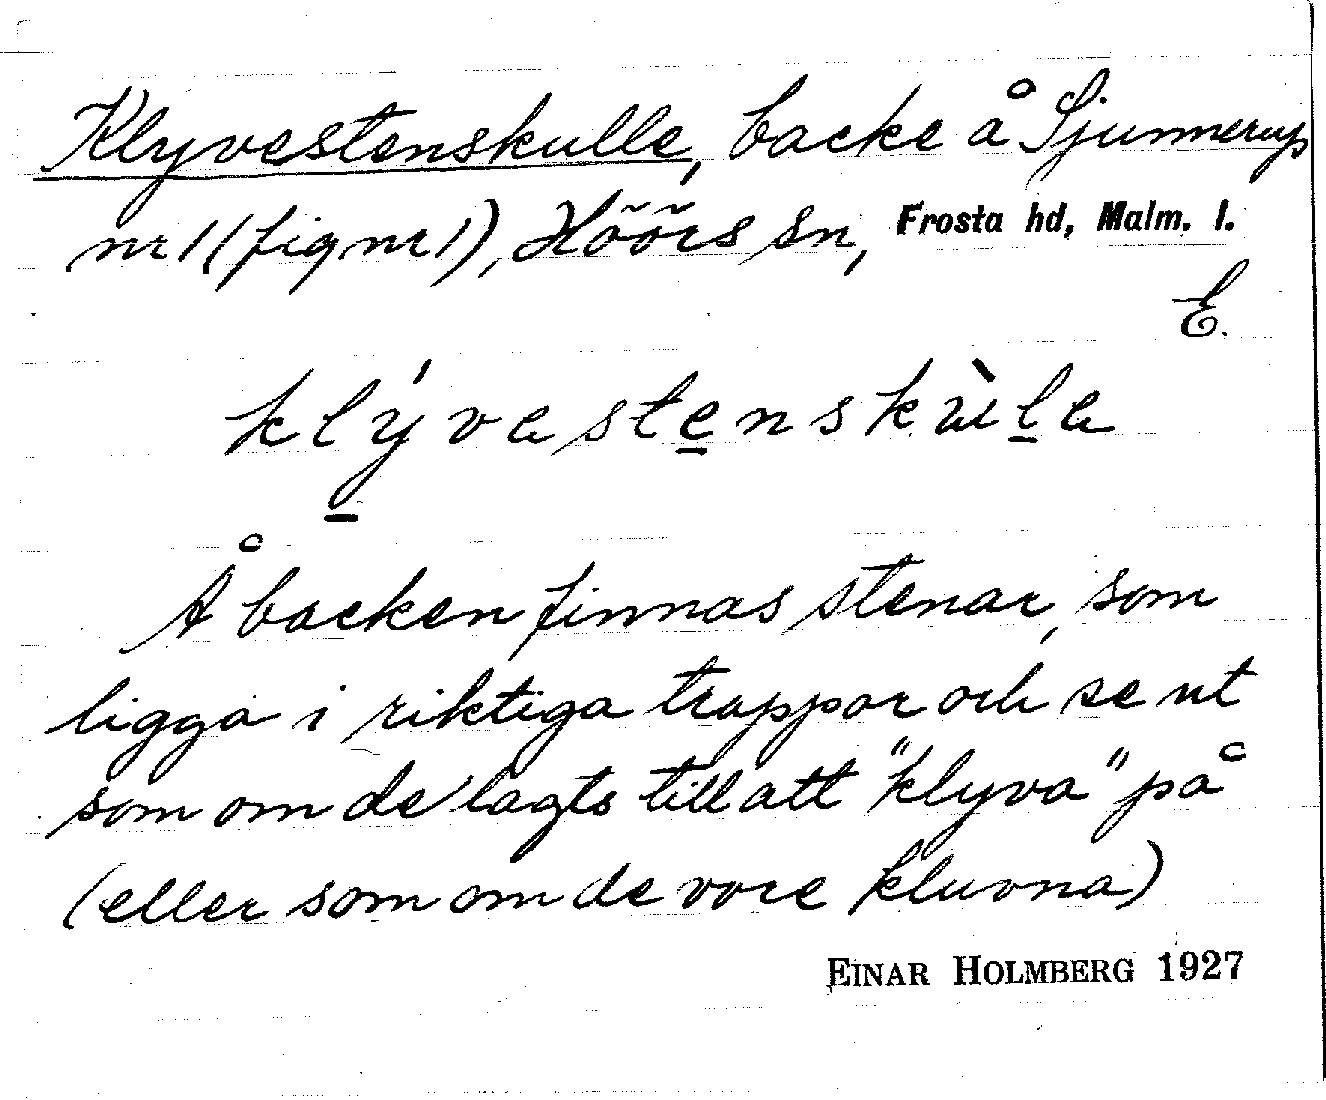 Klyvestenskulle, backe å Sjunnerup
nr 1 (fig nr 1), Höörs sn, Frosta hd, Malm. l.
E.
klývestenskùle
Å backen finnas stenar, som
ligga i riktiga trappor och se ut
som om de lagts till att "klyva" på
(eller som om de vore kluvna)
EINAR HOLMBERG 1927